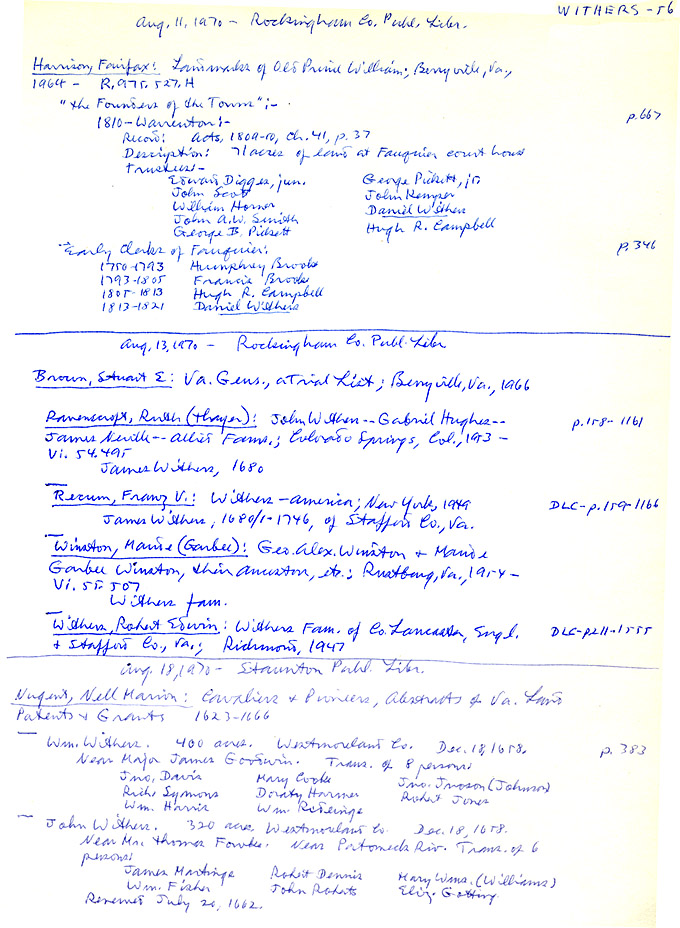 WITHERS-56
Aug. 11, 1970 - Rockingham Co. Publ. Libr.
Harrison, Fairfax: Landmarks of Old Prince William; Berryville, Va.,
1964 - R, 975.527, H
"The Founders of the Towns";-
1810-Warrenton:-
p.667
Record: Acts, 1809-10, Ch. 41, p. 37
Description: 71 acres of land at Fauquier court house
Trustees-
Edward Digges, jun. George Pickett, jr.
John Scott John Kemper
William Horner Daniel Withers
John A.W. Smith Hugh R. Campbell
George B. Pickett
"Early Clerks of Fauquier:
p.346
1750-1793 Humphrey Brooke
1793-1805 Francis Brooke
1805-1813 Hugh R. Campbell
1813-1821 Daniel Withers
Aug. 13, 1970 - Rockingham Co. Publ. Libr
Brown, Stuart E: Va. Gens., a Trial List; Berryville, Va., 1966
Ravenscroft, Ruth (Thayer): John Withers--Gabriel Hughes-- p.158-1161
James Neville--allied Fams.; Colorado Springs, Col., 1953 -
Vi. 54.495
James Withers, 1680
Recum, Franz V.: Withers-America; New York, 1949 DLC-p.159-1166
James Withers, 1680/1-1746, of Stafford Co., Va.
Winston, Maude (Garbee): Geo. Alex. Winston & Maude
Garbee Winston, their ancestors, etc.; Rustburg, Va., 1954 -
Vi. 55.507
Withers fam.
Withers, Robert Edwin: Withers Fam. of Co. Lancaster, Engl. DLC-p211-1555
& Stafford Co., Va.; Richmond, 1947
Aug. 18, 1970 - Staunton Publ. Libr.
Nugent, Nell Marion: Cavaliers & Pioneers, Abstracts of Va. Land
Patents & Grants 1623-1666
Wm. Withers. 400 acres. Westmoreland Co. Dec. 18, 1658. p. 383
Near Major James Goodwin. Trans. of 8 persons:
Jno. Davis Mary Cooke Jno. Jnoson (Johnson)
Richd Symons Doraty Harmer Robert Jones
Wm. Harris Wm.
John Withers. 320 acres, Westmoreland Co. Dec. 18, 1658.
Near Mr. Thomas Fowke. Near Potomeck Riv. Trans. of 6
persons:
James Martinge Robert Dennis Mary Wms. (Williams)
Wm. Fisher John Roberts Eliz.
Renewed July 20, 1662.